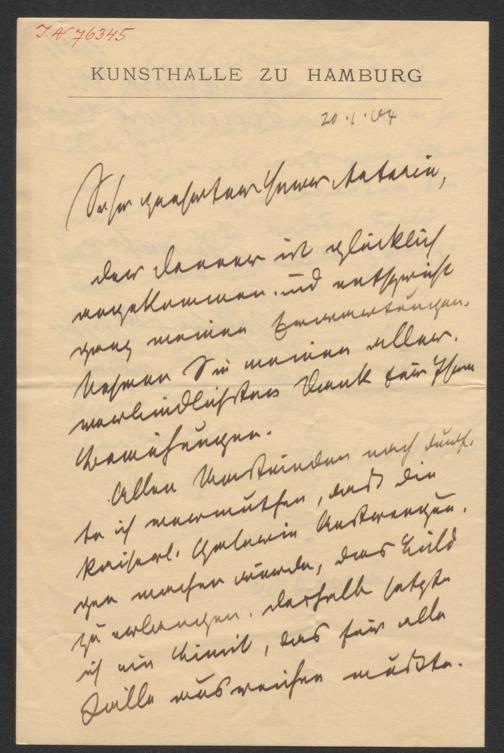 J.N 76345
KUNSTHALLE ZU HAMBURG
20.1.04
Sehr geehrter Herr Artaria,
der Danner ist glücklich
angekommen und entspricht
ganz meinen Erwartungen.
Nehmen Sie meinen aller-
verbindlichsten Dank für Ihre
Bemühungen.
Allen Umständen nach durf-
te ich vermuthen, daß die
Kaiserl. Galerie Anstrengun-
gen machen würde, das Bild
zu erlangen. Deshalb setzte
ich ein Limit, das für alle
Fälle ausreichen mußte.